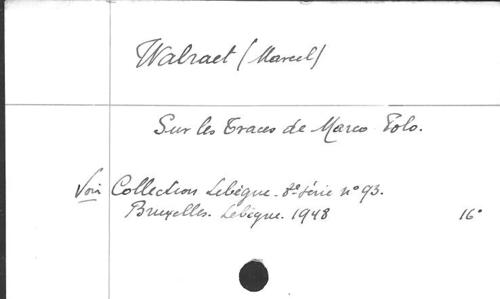 Walraet (Marcel)
Sur les Traces de Marco Polo.
Voir Collection Lebègue. 8e série n° 93.
Bruxelles. Lebègue. 1948 16°